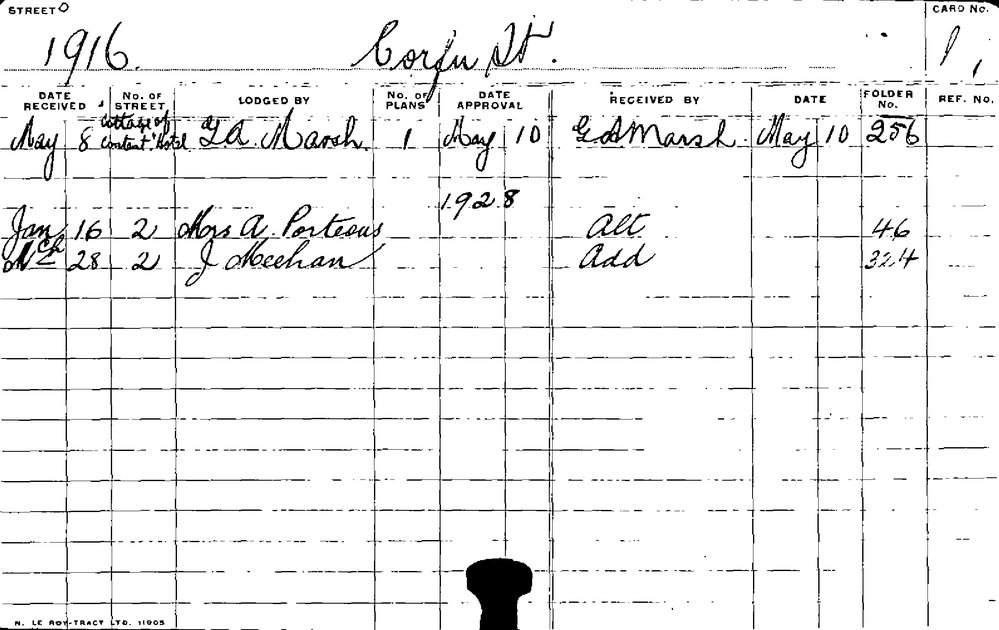 STREET
CARD No.
1916. Corfu St. 1,
DATE RECEIVED No. OF STREET LODGED BY No. OF PLANS DATE APPROVAL RECEIVED BY DATE FOLDER No. REF. No.
May 8 "Cottage of Content" Hotel G A. Marsh. 1 May 10 G A Marsh. May 10 256
1928
Jan 16 2 Mrs A. Porteous Alt 46
Mch 28 2 J Meehan Add 324
N. LE ROY-TRACY LTD. 11905